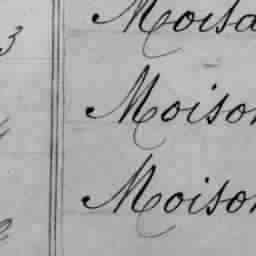 3 Moisa
Moison
Moison